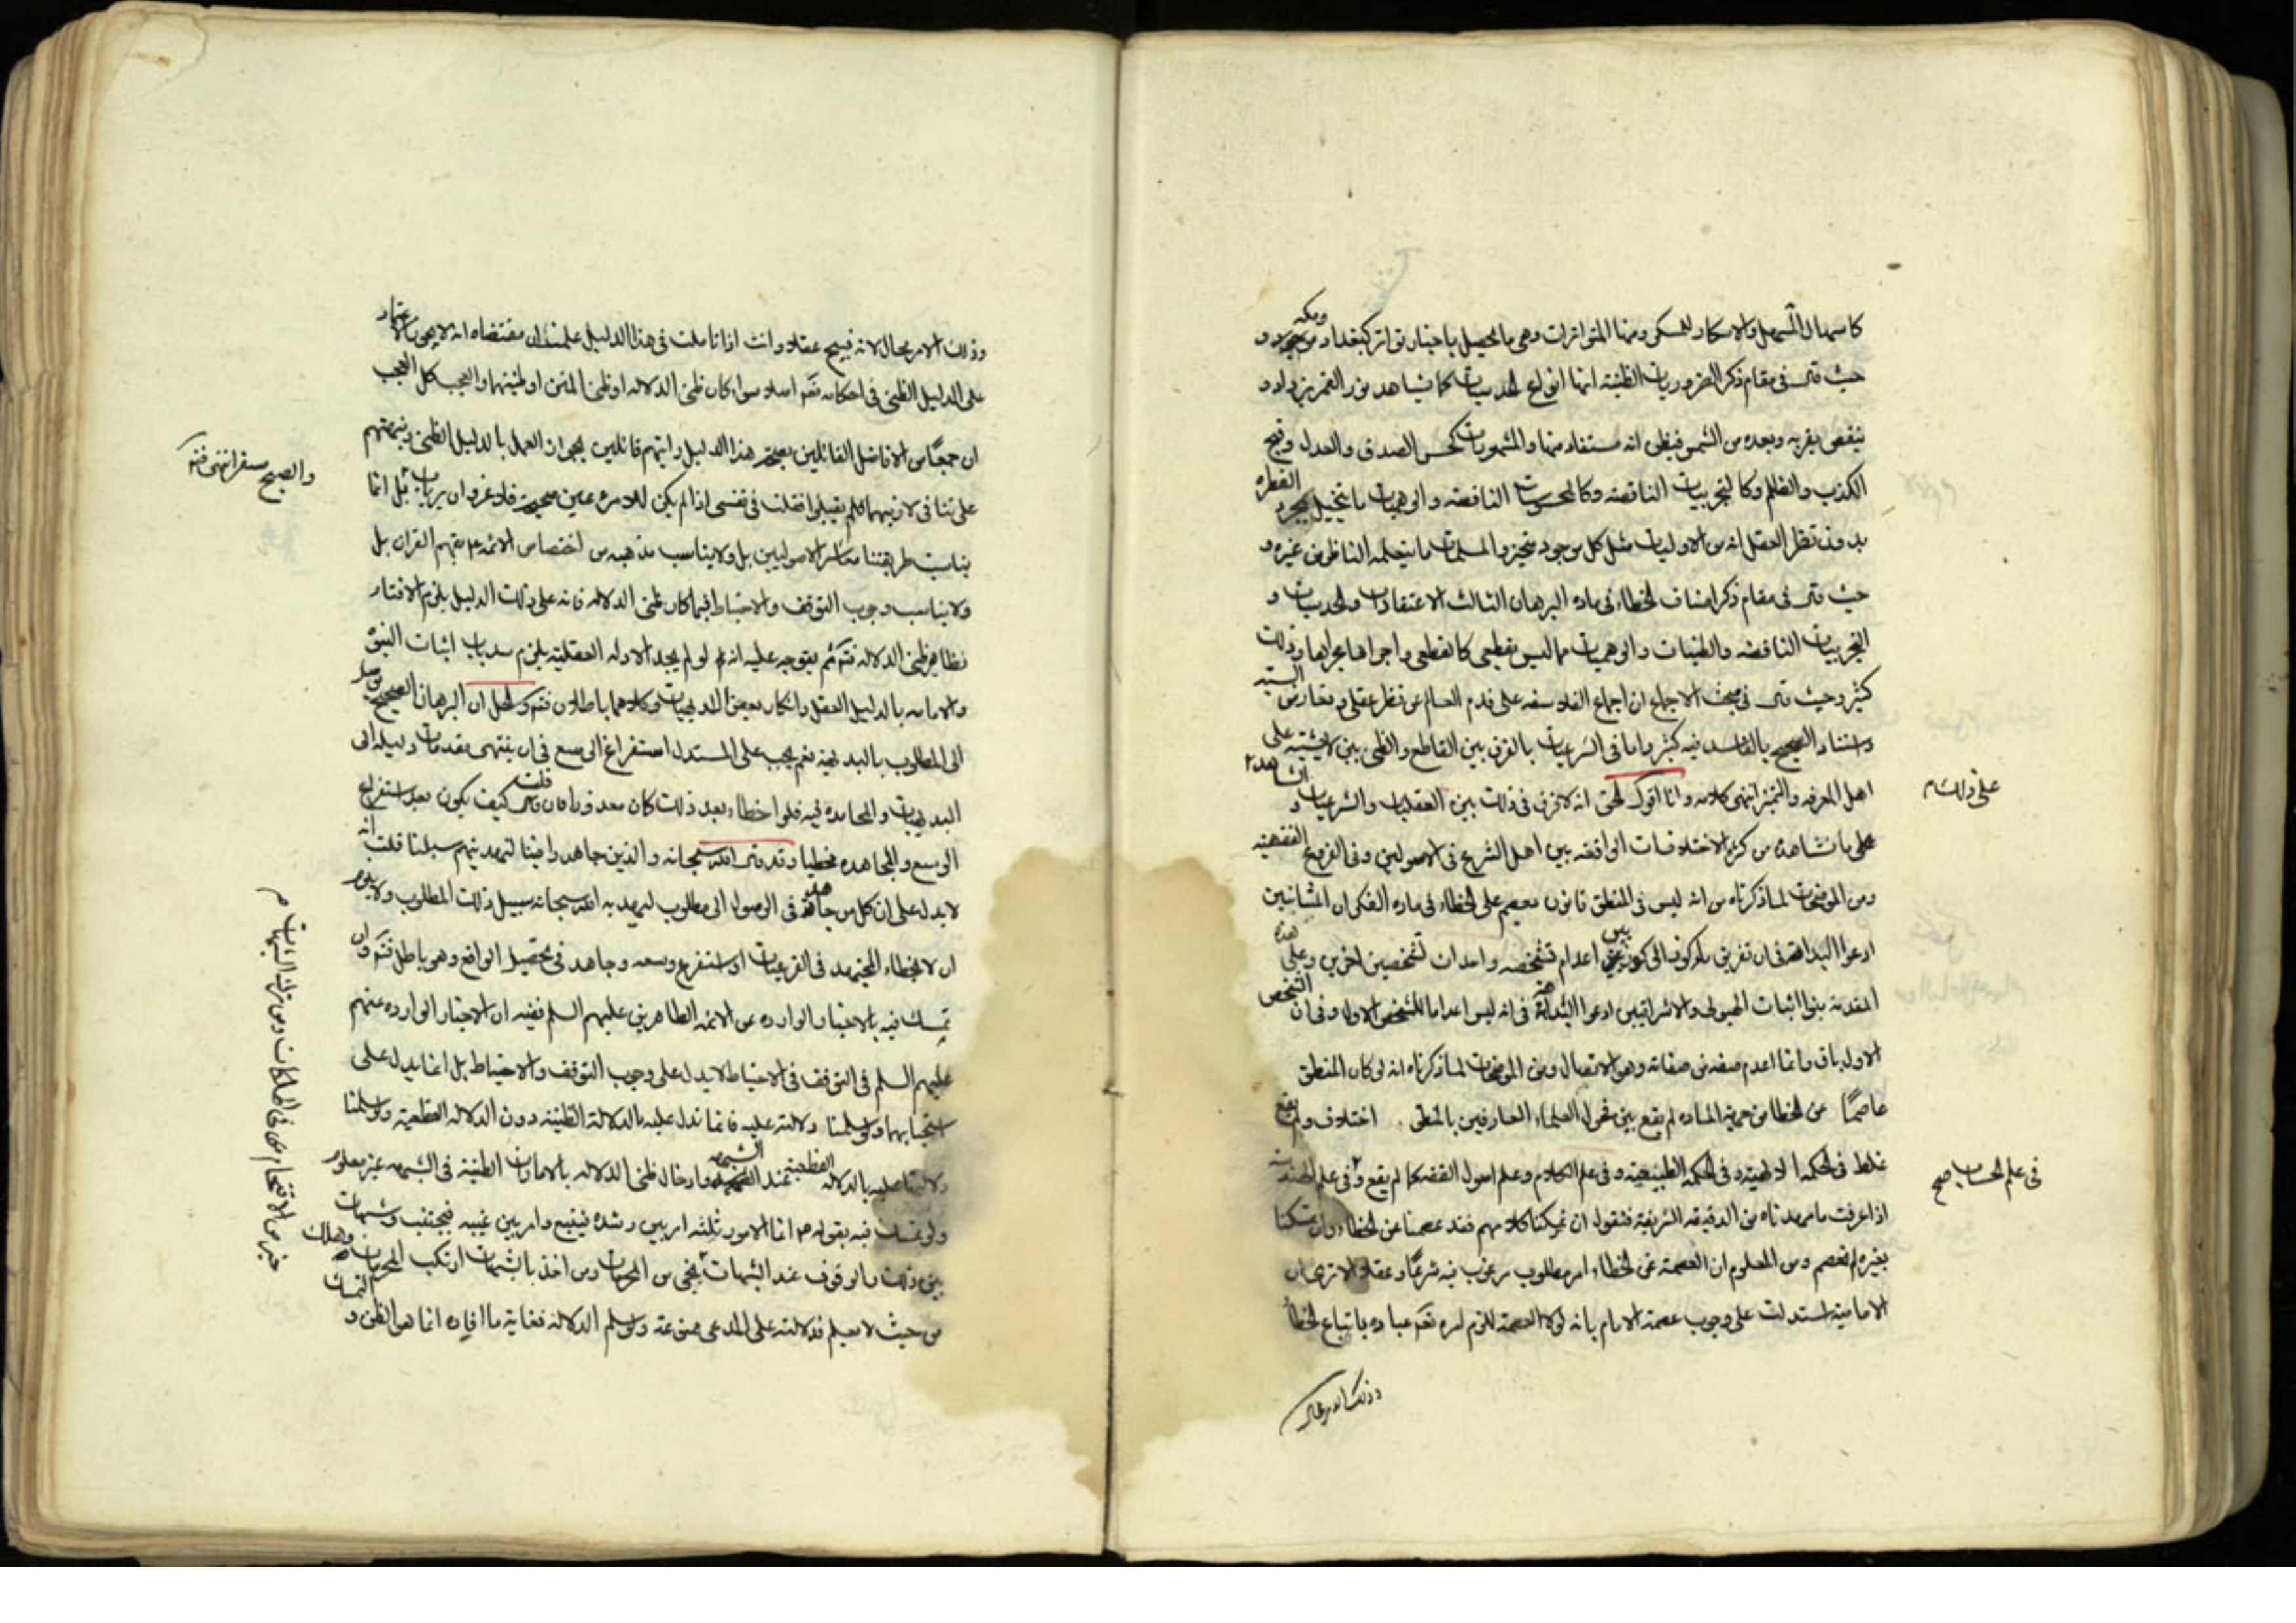 كاسهال المسهل والاسكار للمسكر ومنها المتواترات وهى ما يحصل باخبار تواتر كبغداد موجود ومكه و
حيث قال فى مقام ذكر الضروريات الظنية انها انواع الحدسيات كما نشاهد نور القمر يزداد و
ينقص بقربه وبعده من الشمس فيظن انه مستفاد منها والمشهورات كحسن الصدق والعدل وقبح
الكذب والظلم وكالتجربيات الناقصة وكالمحسوسات الناقصة والوهميات ما يتخيل بمجرد الفطره
بدون نظر العقل انه من الاوليات مثل كل موجود متحيز والمسلمات ما يتسلمه الناظر من غيره و
حيث قال فى مقام ذكر اصناف الخطاء فى ماده البرهان الثالث الاعتقادات والحدسيات و
التجربيات الناقصه والظنيات والوهميات مما ليس بقطعى كالقطعى واجراها مجراها وذلك
كثير وحيث قال فى مبحث الاجماع ان اجماع الفلاسفه على قدم العالم عن نظر عقلى وتعارض الشبه
واشتباه الصحيح بالفاسد فيه كثير واما فى الشرعيات بالفرق بين القاطع والظنى بين لا يشتبه على
اهل المعرفه والتميز انتهى كلامه وانا اقول الحق انه لا فرق فى ذلك بين العقليات والشرعيات و الشاهد
على ذلك
على ما نشاهده من كثرة الاختلافات الواقعه بين اهل الشرع فى الاصولين وفى الفروع الفقهيه
ومن الموضحات لما ذكرناه من انه ليس فى المنطق قانون يعصم على الخطاء فى ماده الفكر ان المشائين
ادعوا البداهة فى ان تفريق ماء كوز الى كوزين اعدام لشخصه واحداث لشخصين اخرين وعلى هذه
المقدمة بنوا اثبات الهيولى والاشراقيين ادعوا البداهة فى انه ليس اعداما للشخص الاول وفى ان الشخص
الاول باق وانما اعدم صفه من صفاته وهو الاتصال ومن الموضحات لما ذكرناه انه لو كان المنطق
عاصمًا من الخطا من جهة الماده لم يقع بين فحول العلماء العارفين بالمنطق اختلاف ولم يقع
غلط فى الحكمه الالهية وفى الحكمه الطبيعية وفى علم الكلام وعلم اصول الفقه كما لم يقع فى علم الهندسه
فى علم الحساب صح
اذا عرفت ما مهدناه من الدقيقه الشريفة فنقول ان تمسكنا بكلامهم فقد عصمنا عن الخطاء وان تمسكنا
بغيره لم نعصم ومن المعلوم ان العصمة عن الخطاء امر مطلوب مرغوب فيه شرعًا وعقلا الا ترى ان
الامامية استدلت على وجوب عصمة الامام بانه لولا العصمة للزم امره تعم عباده باتباع الخطأ
وذلك الامر محال
وذلك الامر محال لانه قبيح عقلا وانت اذا تاملت فى هذا الدليل علمت ان مقتضاه انه لا يجوز الاعتماد
على الدليل الظنى فى احكامه تعم اصلا سواء كان ظنى الدلاله او ظنى المتن او ظنيتهما والعجب كل العجب
ان جمعًا من الافاضل القائلين بصحة هذا الدليل رايتهم قائلين بجواز العمل بالدليل الظنى ونبهتهم
على تنافى لازميهما فلم يقبلوا فقلت فى نفسى اذا لم يكن للمرء عين صحيحة فلا غرو ان يرتاب قيل انما
والصبح مسفر انتهى
يناسب طريقتنا معاشر الاصوليين بل ولا يناسب مذهبه من اختصاص الائمه بفهم القران بل
ولا يناسب وجوب التوقف والاحتياط فيما كان ظنى الدلاله فانه على ذلك الدليل يلزم الافتاء
بظاهر ظنى الدلاله ثم يتوجه عليه انه لو لم يجد الادله العقلية يلزم سد باب اثبات النبوه
والامامه بالدليل العقل وانكار بعض البديهيات وكلاهما باطلان والحل ان البرهان الصحيح موصل
الى المطلوب بالبديهة نعم يجب على المستدل استفراغ الوسع فى ان ينتهى مقدمات دليله الى
البديهيات والمجاهده فيه فلو اخطاء بعد ذلك كان معذورا فان قلت كيف يكون بعد استفراغ
الوسع والمجاهده مخطيا وقد قال الله سبحانه والذين جاهدوا فينا لنهدينهم سبلنا قلت انه
لا يدل على ان كل من جاهد فى الوصول الى مطلوب ليهديه الله سبحانه سبيل ذلك المطلوب ولا يلزم
ان لا يخطاء المجتهد فى الفرعيات اذا استفرغ وسعه وجاهد فى تحصيل الواقع وهو باطل وان
تمسك فيه بالاخبار الوارده عن الائمه الطاهرين عليهم السلم ففيه ان الاخبار الوارده عنهم
عليهم السلم فى التوقف فى الاحتياط لا يدل على وجوب التوقف والاحتياط بل انما يدل على
استحبابهما ولو سلمنا دلالته عليه فانما تدل عليه بالدلالة الظنيه دون الدلاله القطعية ولو سلمنا
دلالتها عليه بالدلاله القطعية عند الشبهه وادخال ظنى الدلاله بالامارات الظنية فى الشبهه غير معلوم
ولو تمسك فيه بقوله انما الامور ثلثه امر بين رشده فيتبع وامر بين غيبه فيجتنب وشبهات
بين ذلك والوقوف عند الشبهات نجى من المحرمات ومن اخذ بالشبهات ارتكب المحرمات وهلك
من حيث لا يعلم فدلالته على المدعى ممنوعة ولو سلم الدلاله فغاية ما افاده انما هو الظن و
خير من الاقتحام فى الهلكات ومن ترك الشبهات